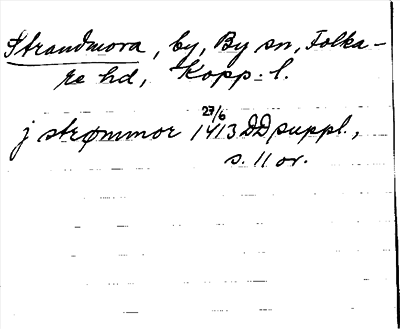 Strandmora, by, By sn, Folka-
re hd, Kopp. l.
j strømmor 27/6 1413 DD suppl.,
s. 11 or.